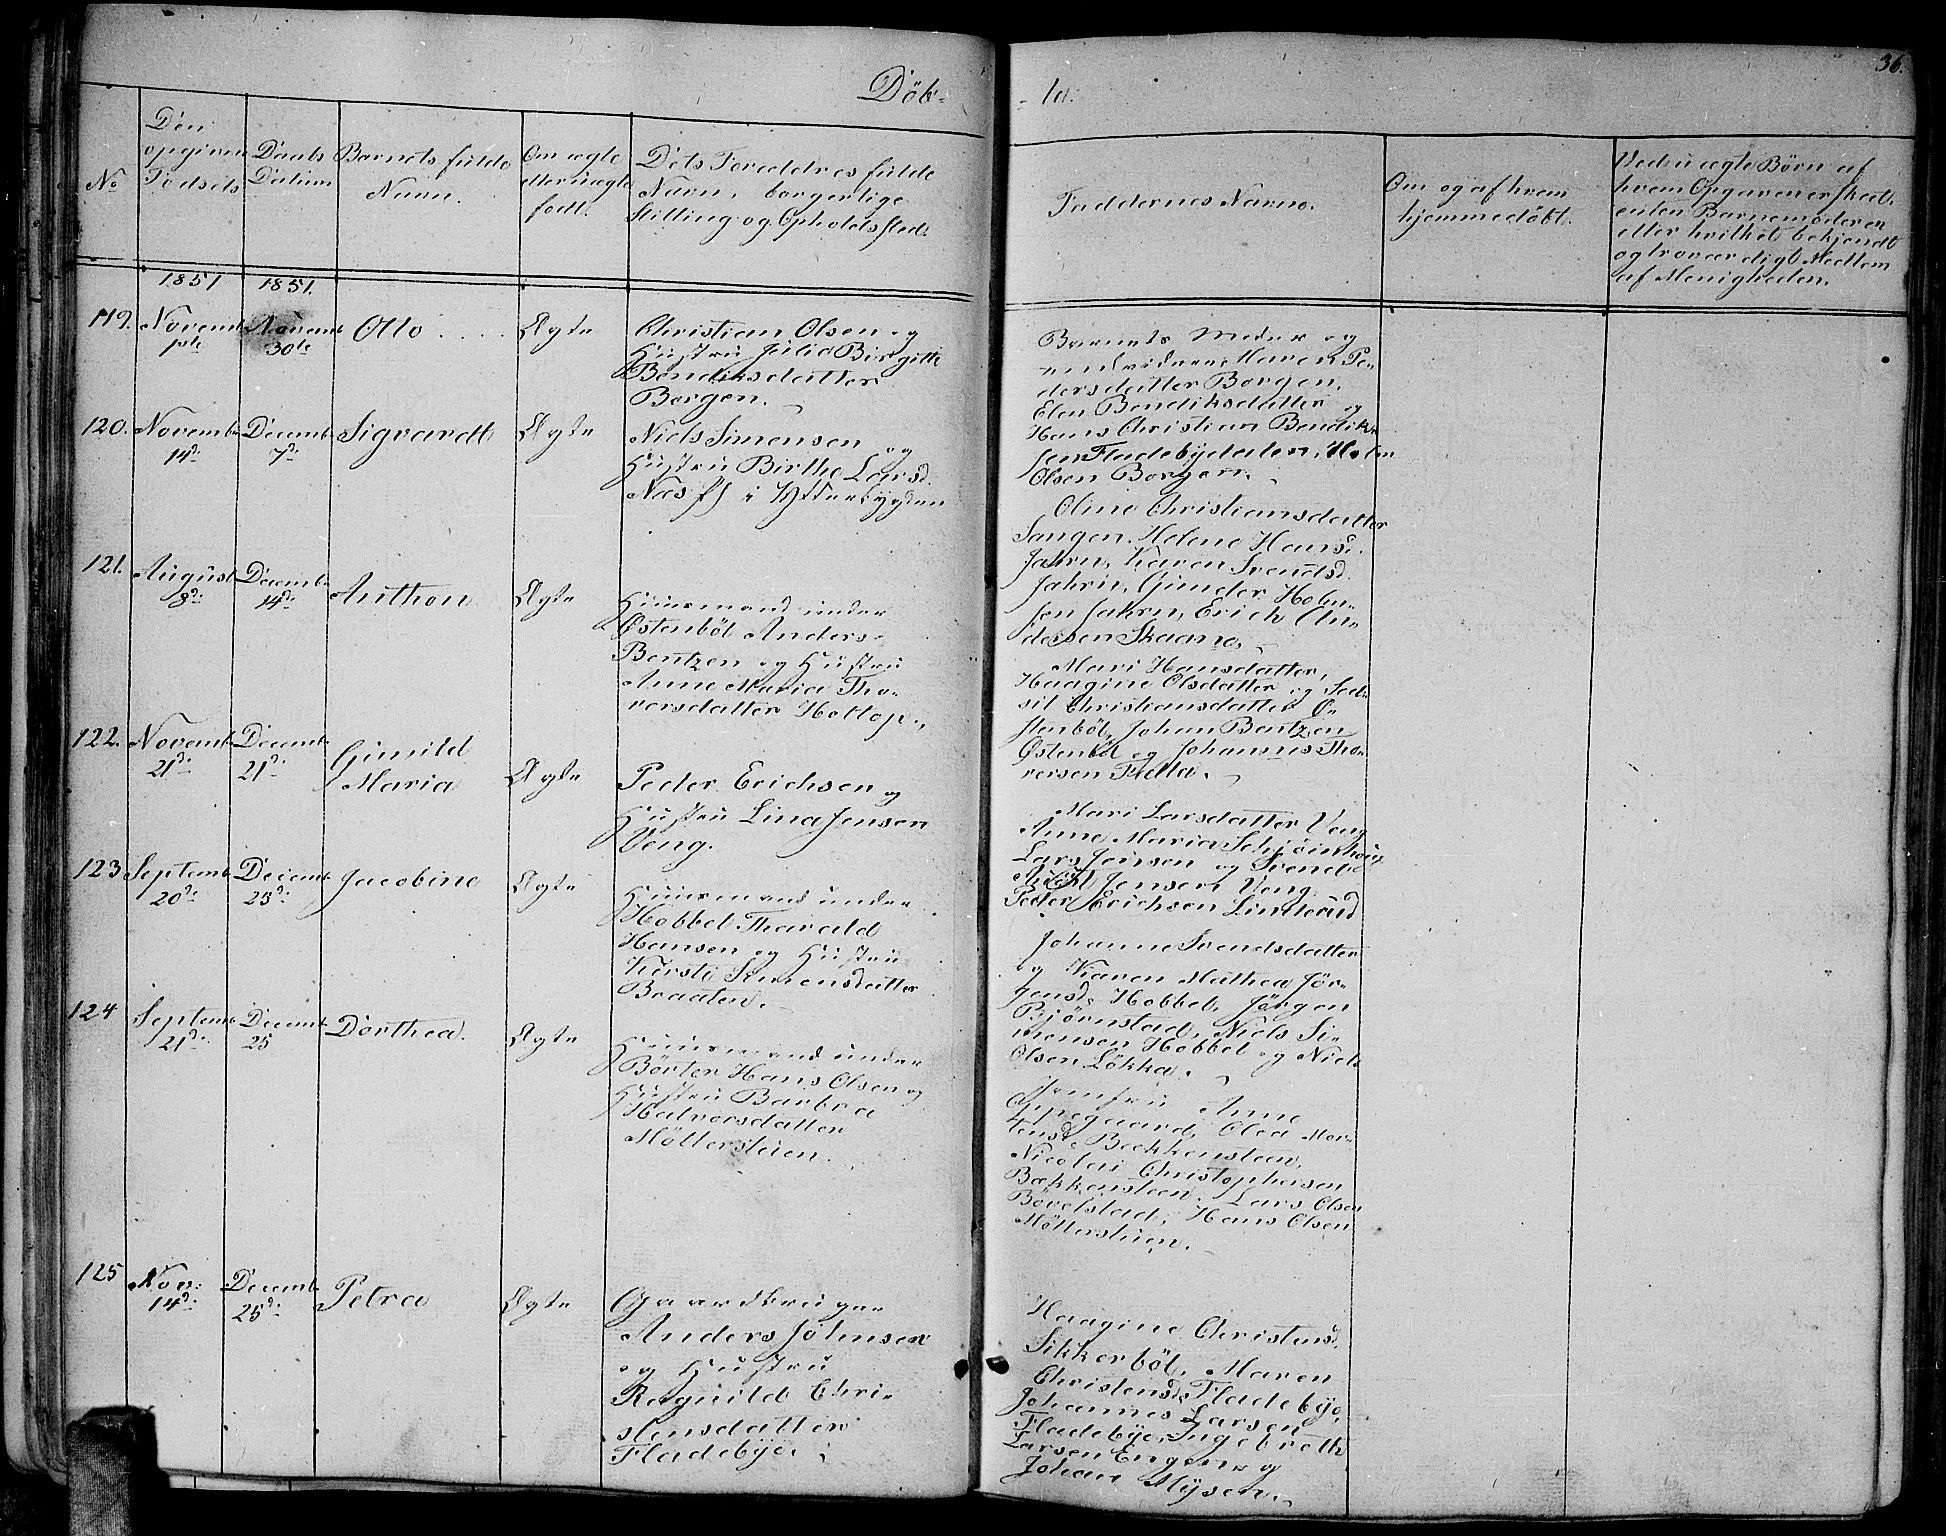 Döb-
-te.
36.
No
Den
opgivne
Födsels
Daabs
Datum
Barnets fulde
Navn.
Om ægte
eller uægte
født.
Dets Foreldres fulde
Navn, borgerlige
Stilling og Opholdssted.
Faddernes Navne.
Om og af hvem
hjemmedöbt.
Ved uægte Børn af
hvem Opgaven er skeet,
enten Barnemoderen
eller hvilket bekjendt
og troværdigt Medlem
af Menigheden.
1851
1851.
119.
Novemb
30te
Otto
Ægte
Christian Olsen og
Hustru Julia Birgitte
Bendiksdatter
Borgen.
Barnets Moder og
Maren Pe-
dersdatter Borgen,
Elen Bendiksdatter og
Hans Christian Bendik-
sen Fladebydalen,
Olsen Borgen.
120.
Novemb
14de
Decemb
7de
Sigvardt
Ægte
Niels Simensen
og
Hustru Birthe Larsd.
Næs i Ytterbygden
Oline Christiansdatter
Sangen, Helene Hansd.
Jahrn, Karen Svendsd.
Jahrn, Gunder Hol-
sen Jahrn, Erich An-
dersen Skaane.
121.
August
8de
Decemb
14de
Anthon
Ægte
Huusmand under
Østenböl Anders
Bentzen og Hustru
Anne Maria Tho-
rersdatter Holtop.
Mari Hansdatter,
Haagine Olsdatter og
Christiansdatter Ø-
stenböl, Johan Bentzen
Østenböl og Johannes Tho-
rersen
122.
Novemb
21de
Decemb
21de
Gunild
Maria
Ægte
Peder Erichsen og
Hustru Lina Jensen
Veng.
Mari Larsdatter Veng
Anne Maria
Lars Jensen og Svend
Jensen Veng
Peder Erichsen
123
Septemb
20de
Decemb
25de
Jacobine
Ægte
Huusmand under
Hobbel Tharald
Hansen og Hustru
Kirsti Simensdatter
Braaten.
Johanne Svendsdatter
og Karen Mathea Jör-
gensd. Hobbel, Jörgen
Björnstad, Niels Si-
mensen Hobbel og Niels
Olsen Lökka.
124
Septemb
21de
Decemb
25
Dorthea.
Ægte
Huusmand under
Börter Hans Olsen og
Hustru Barbra
Halvorsdatter
Möllerstuen.
Jomfru Anne
Oppegaard, Olea Mor-
tensd. Bækkensteen,
Nicolai Christophersen
Bækkensteen, Lars Olsen
Hans Olsen
Möllerstuen.
125
Nov:
14de
Decemb
25de
Petra
Ægte
Gaardbruger
Anders Johnsen
og Hustru
Ragnild Chri-
stensdatter
Fladebye.
Haagine Christensd.
Sikkerböl, Maren
Christensd. Fladebye,
Johannes Larsen
Fladebye, Ingebreth
Larsen Engen og
Johan Mysen.